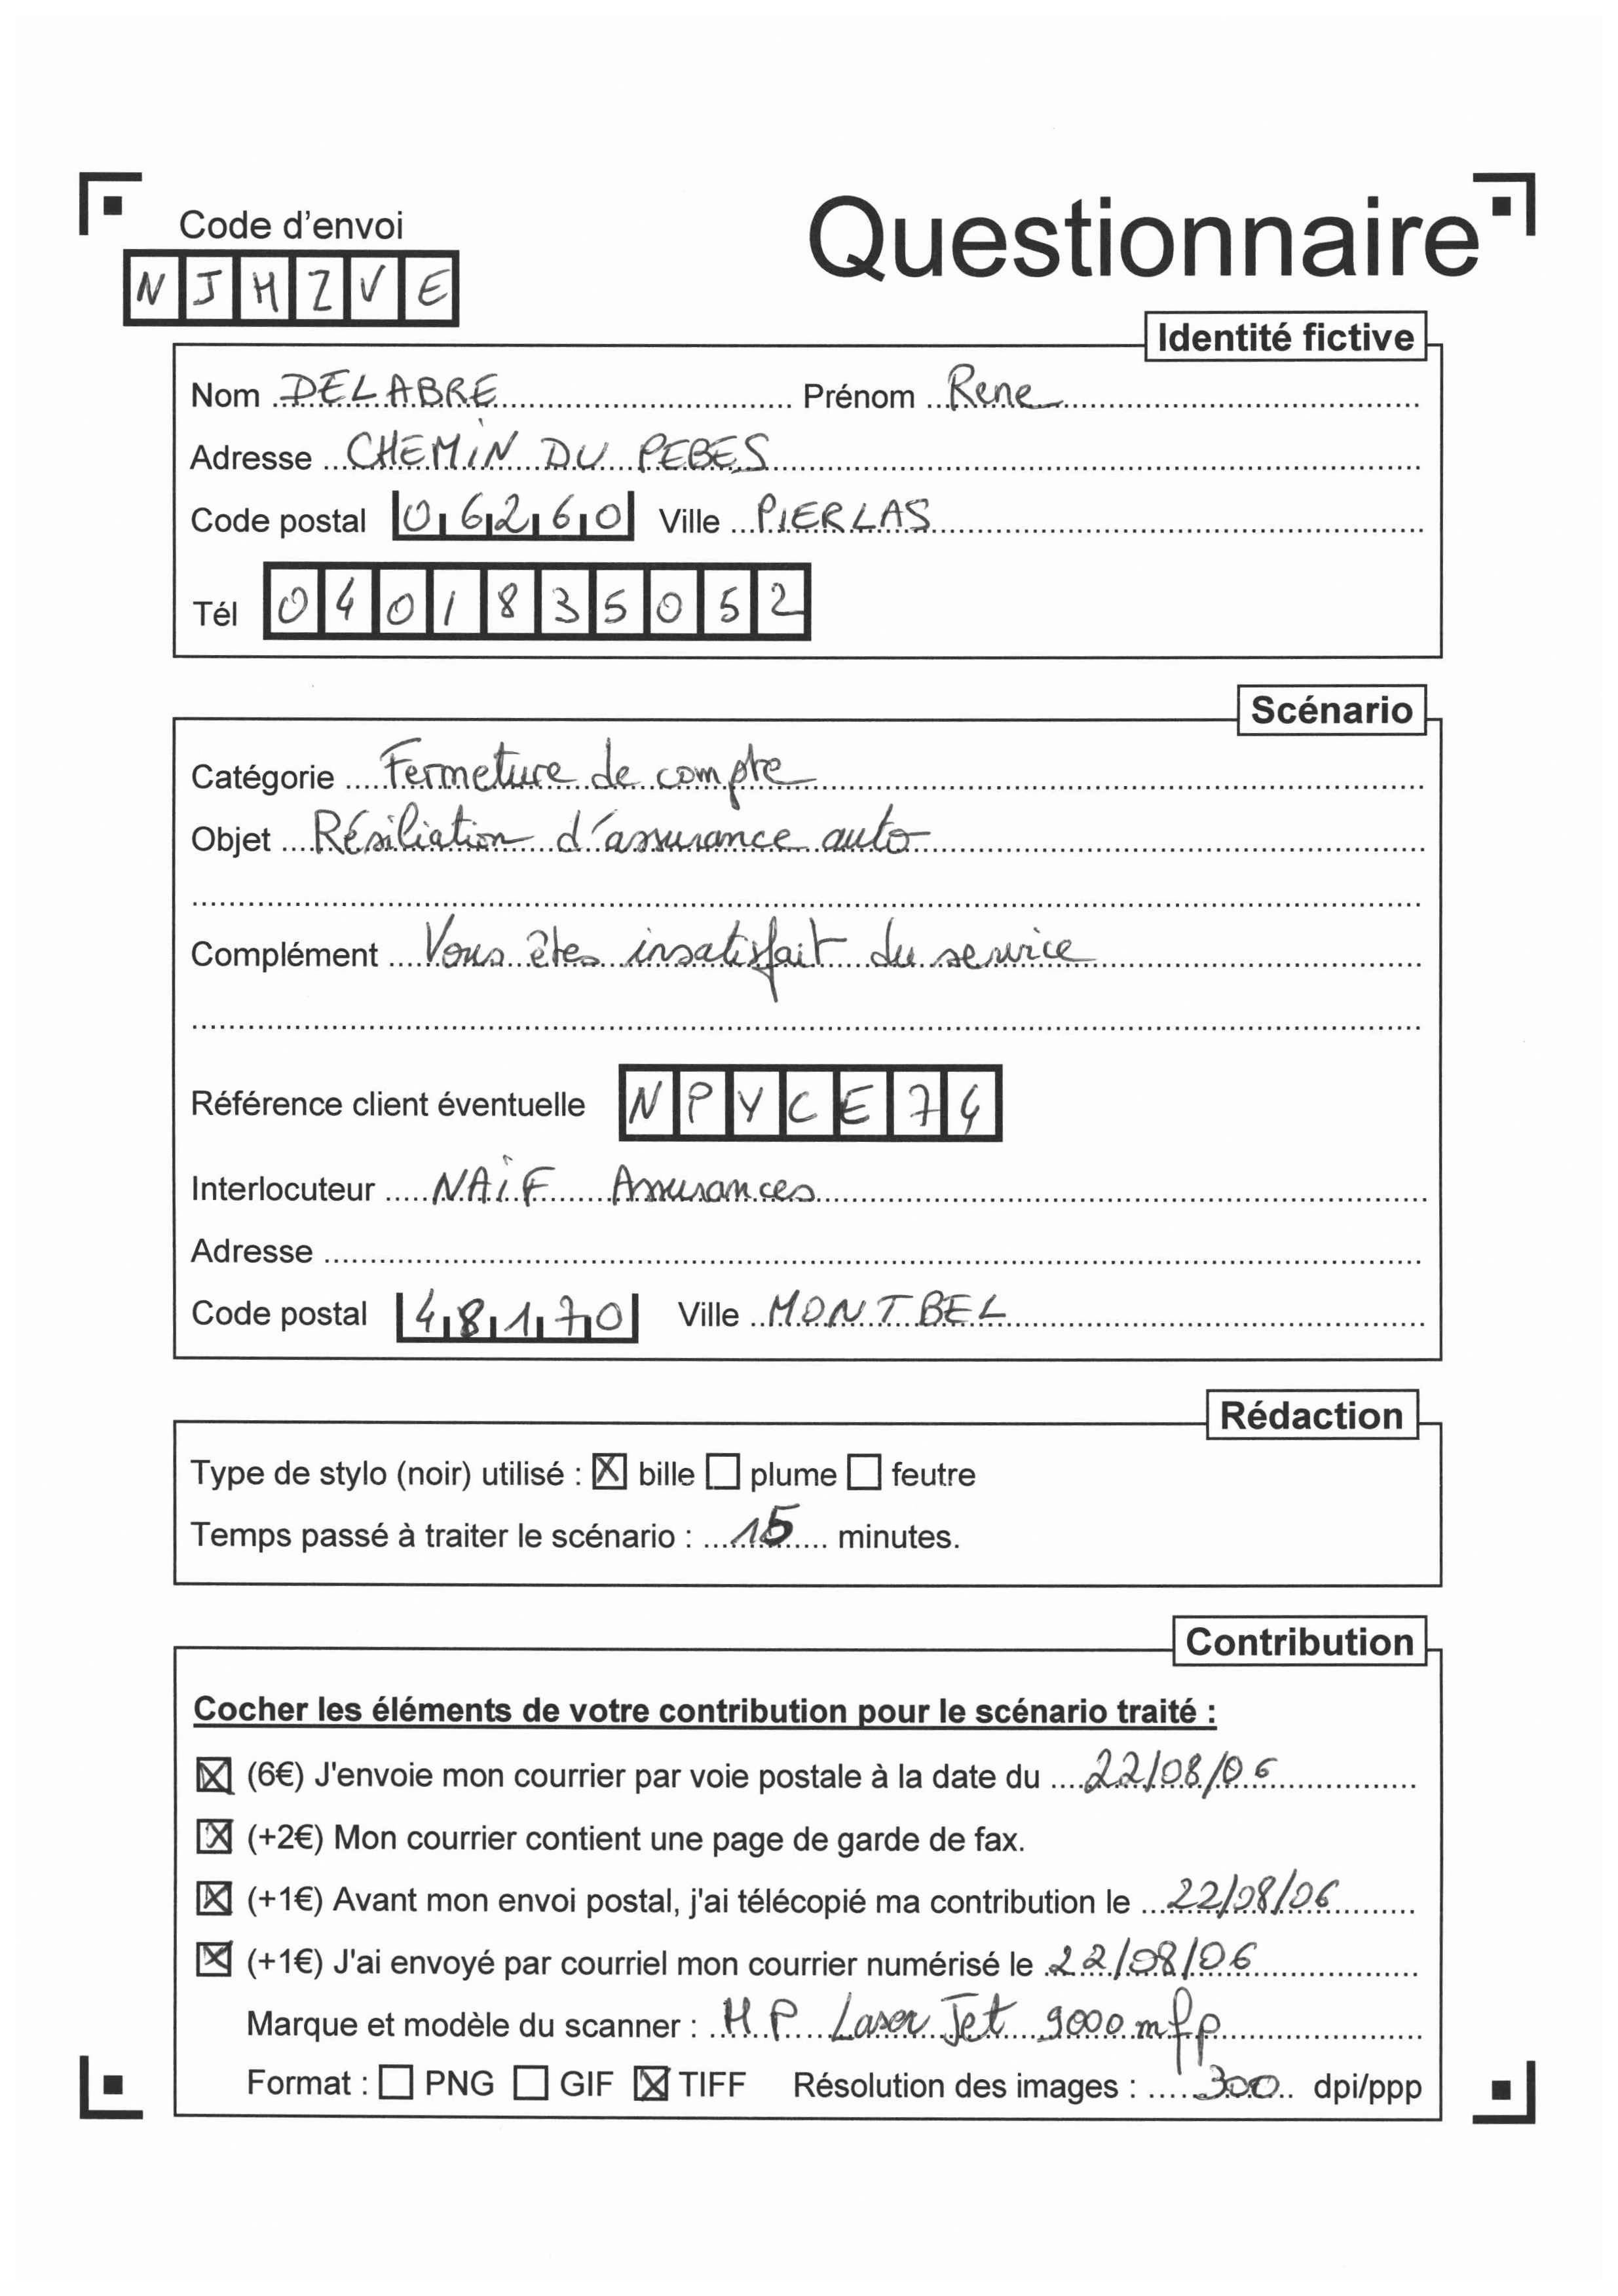 Code d'envoi
Questionnaire
N J M Z V E
Identité fictive
Nom DELABRE Prénom Rene
Adresse CHEMIN DU PEBES
Code postal 06260 Ville PIERLAS
Tél 0401835052
Scénario
Catégorie Fermeture de compte
Objet Résiliation d'assurance auto
Complément Vous êtes insatisfait du service
Référence client éventuelle NPYCE74
Interlocuteur NAÏF Assurances
Adresse
Code postal 48170 Ville MONTBEL
Rédaction
Type de stylo (noir) utilisé : ☒ bille ☐ plume ☐ feutre
Temps passé à traiter le scénario : 15 minutes.
Contribution
Cocher les éléments de votre contribution pour le scénario traité :
☒ (6€) J'envoie mon courrier par voie postale à la date du 22/08/06
☒ (+2€) Mon courrier contient une page de garde de fax.
☒ (+1€) Avant mon envoi postal, j'ai télécopié ma contribution le 22/08/06
☒ (+1€) J'ai envoyé par courriel mon courrier numérisé le 22/08/06
Marque et modèle du scanner : HP Laser Jet 9000 mfp
Format : ☐ PNG ☐ GIF ☒ TIFF Résolution des images : 300 dpi/ppp